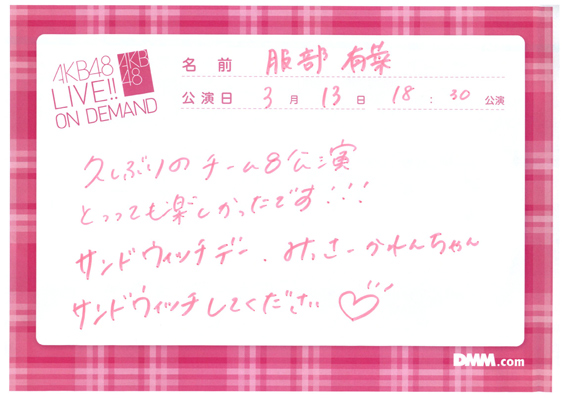 AKB48
LIVE!!
ON DEMAND
AKB
48
名前 服部 有菜
公演日 3月 13日 18:30 公演
久しぶりのチーム8公演
とっっても楽しかったです!!!
サンドウィッチデー、みっさーかれんちゃん
サンドウィッチしてください♡
DMM.com